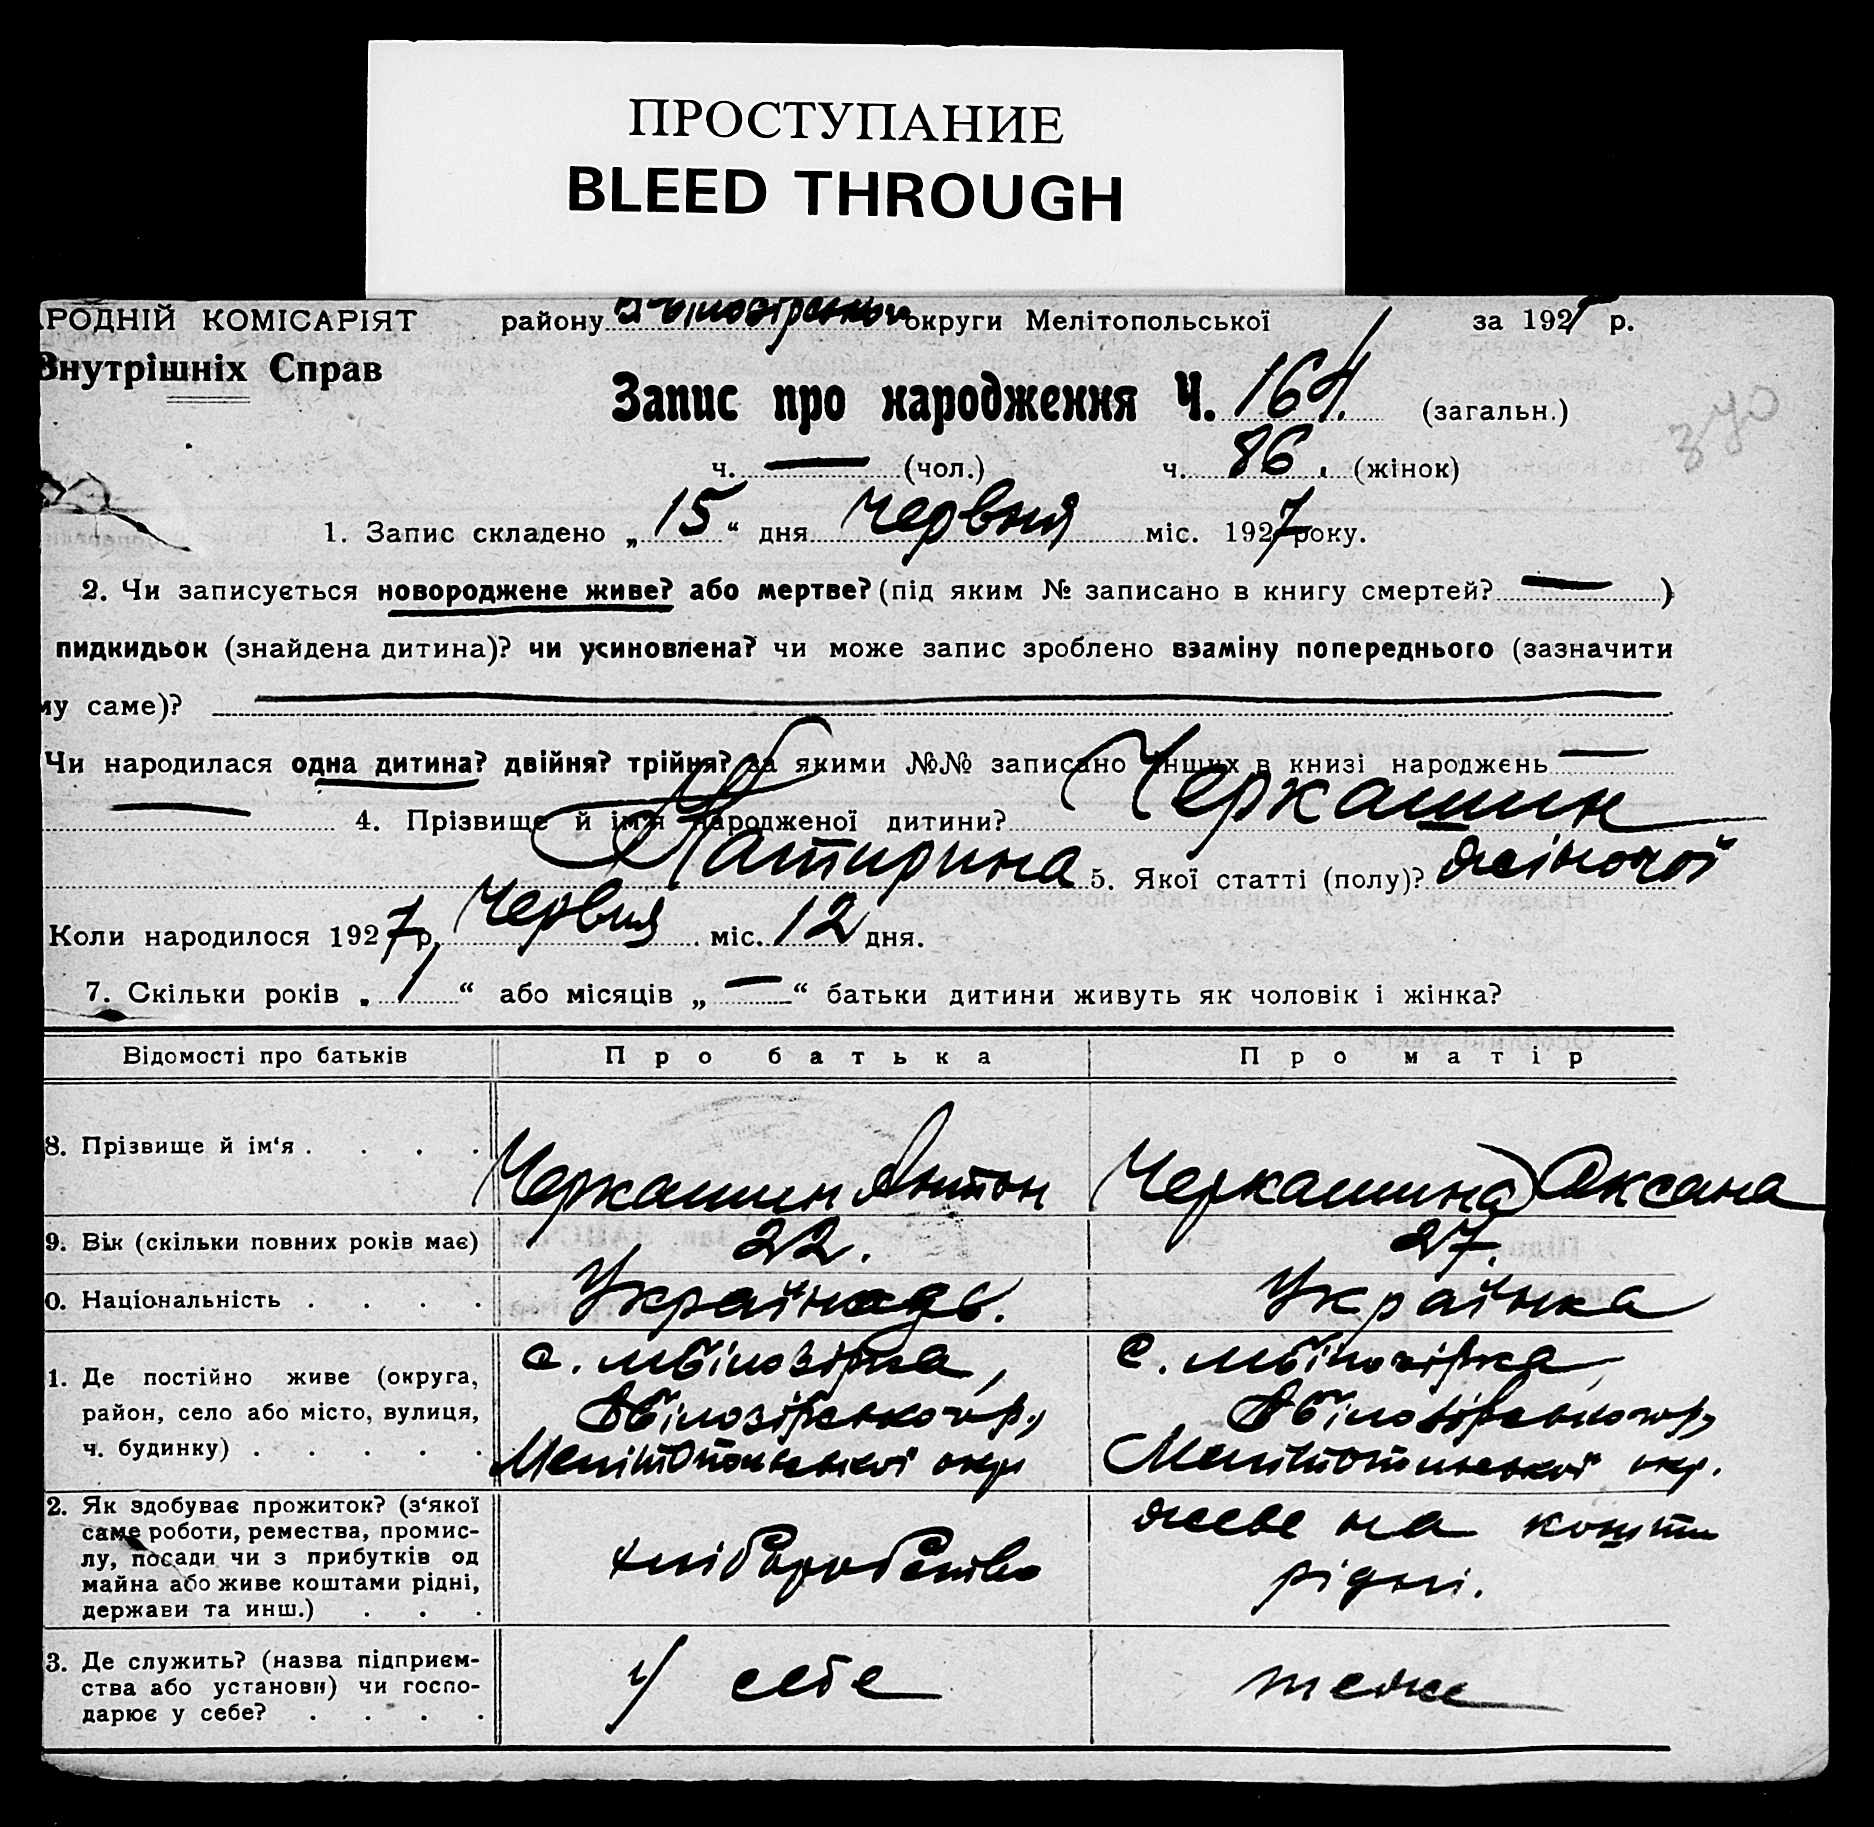 ПРОСТУПАНИЕ
BLEED THROUGH
РОДНІЙ КОМІСАРІЯТ району округи Мелітопольської за 1927 р.
Внутрішніх Справ
Запис про народження Ч. 164. (загальн.)
370
ч. — (чол.) ч. 86. (жінок)
1. Запис складено „15“ дня Червня міс. 1927 року.
2. Чи записується новороджене живе? або мертве? (під яким № записано в книгу смертей? — )
пидкидьок (знайдена дитина)? чи усиновлена? чи може запис зроблено взаміну попереднього (зазначити
му саме)? —
Чи народилася одна дитина? двійня? трійня? за якими №№ записано инших в книзі народжень —
— 4. Прізвище й ім'я народженої дитини? Черкашин
Катирина 5. Якої статті (полу)? жіночої
Коли народилося 1927 р. Червня міс. 12 дня.
7. Скільки років „1“ або місяців „—“ батьки дитини живуть як чоловік і жінка?
Відомості про батьків Про батька Про матір
8. Прізвище й ім'я . . . . Черкашин Антон Черкашина Оксана
9. Вік (скільки повних років має) 22. 27.
0. Національність . . . . Українець. Українка
1. Де постійно живе (округа,
район, село або місто, вулиця,
ч. будинку) . . . . .
с. мбілозірка,
Вбілозірського р.,
Мелітопольської окр
с. мбілозірка,
Вбілозірського р,
Мелітопольської окр.
2. Як здобуває прожиток? (з'якої
саме роботи, ремества, промис-
лу, посади чи з прибутків од
майна або живе коштами рідні,
держави та инш.) . . .
хліборобство
живе на кошти
рідні.
3. Де служить? (назва підприєм-
ства або установи) чи госпо-
дарює у себе? . . . .
у себе
теже